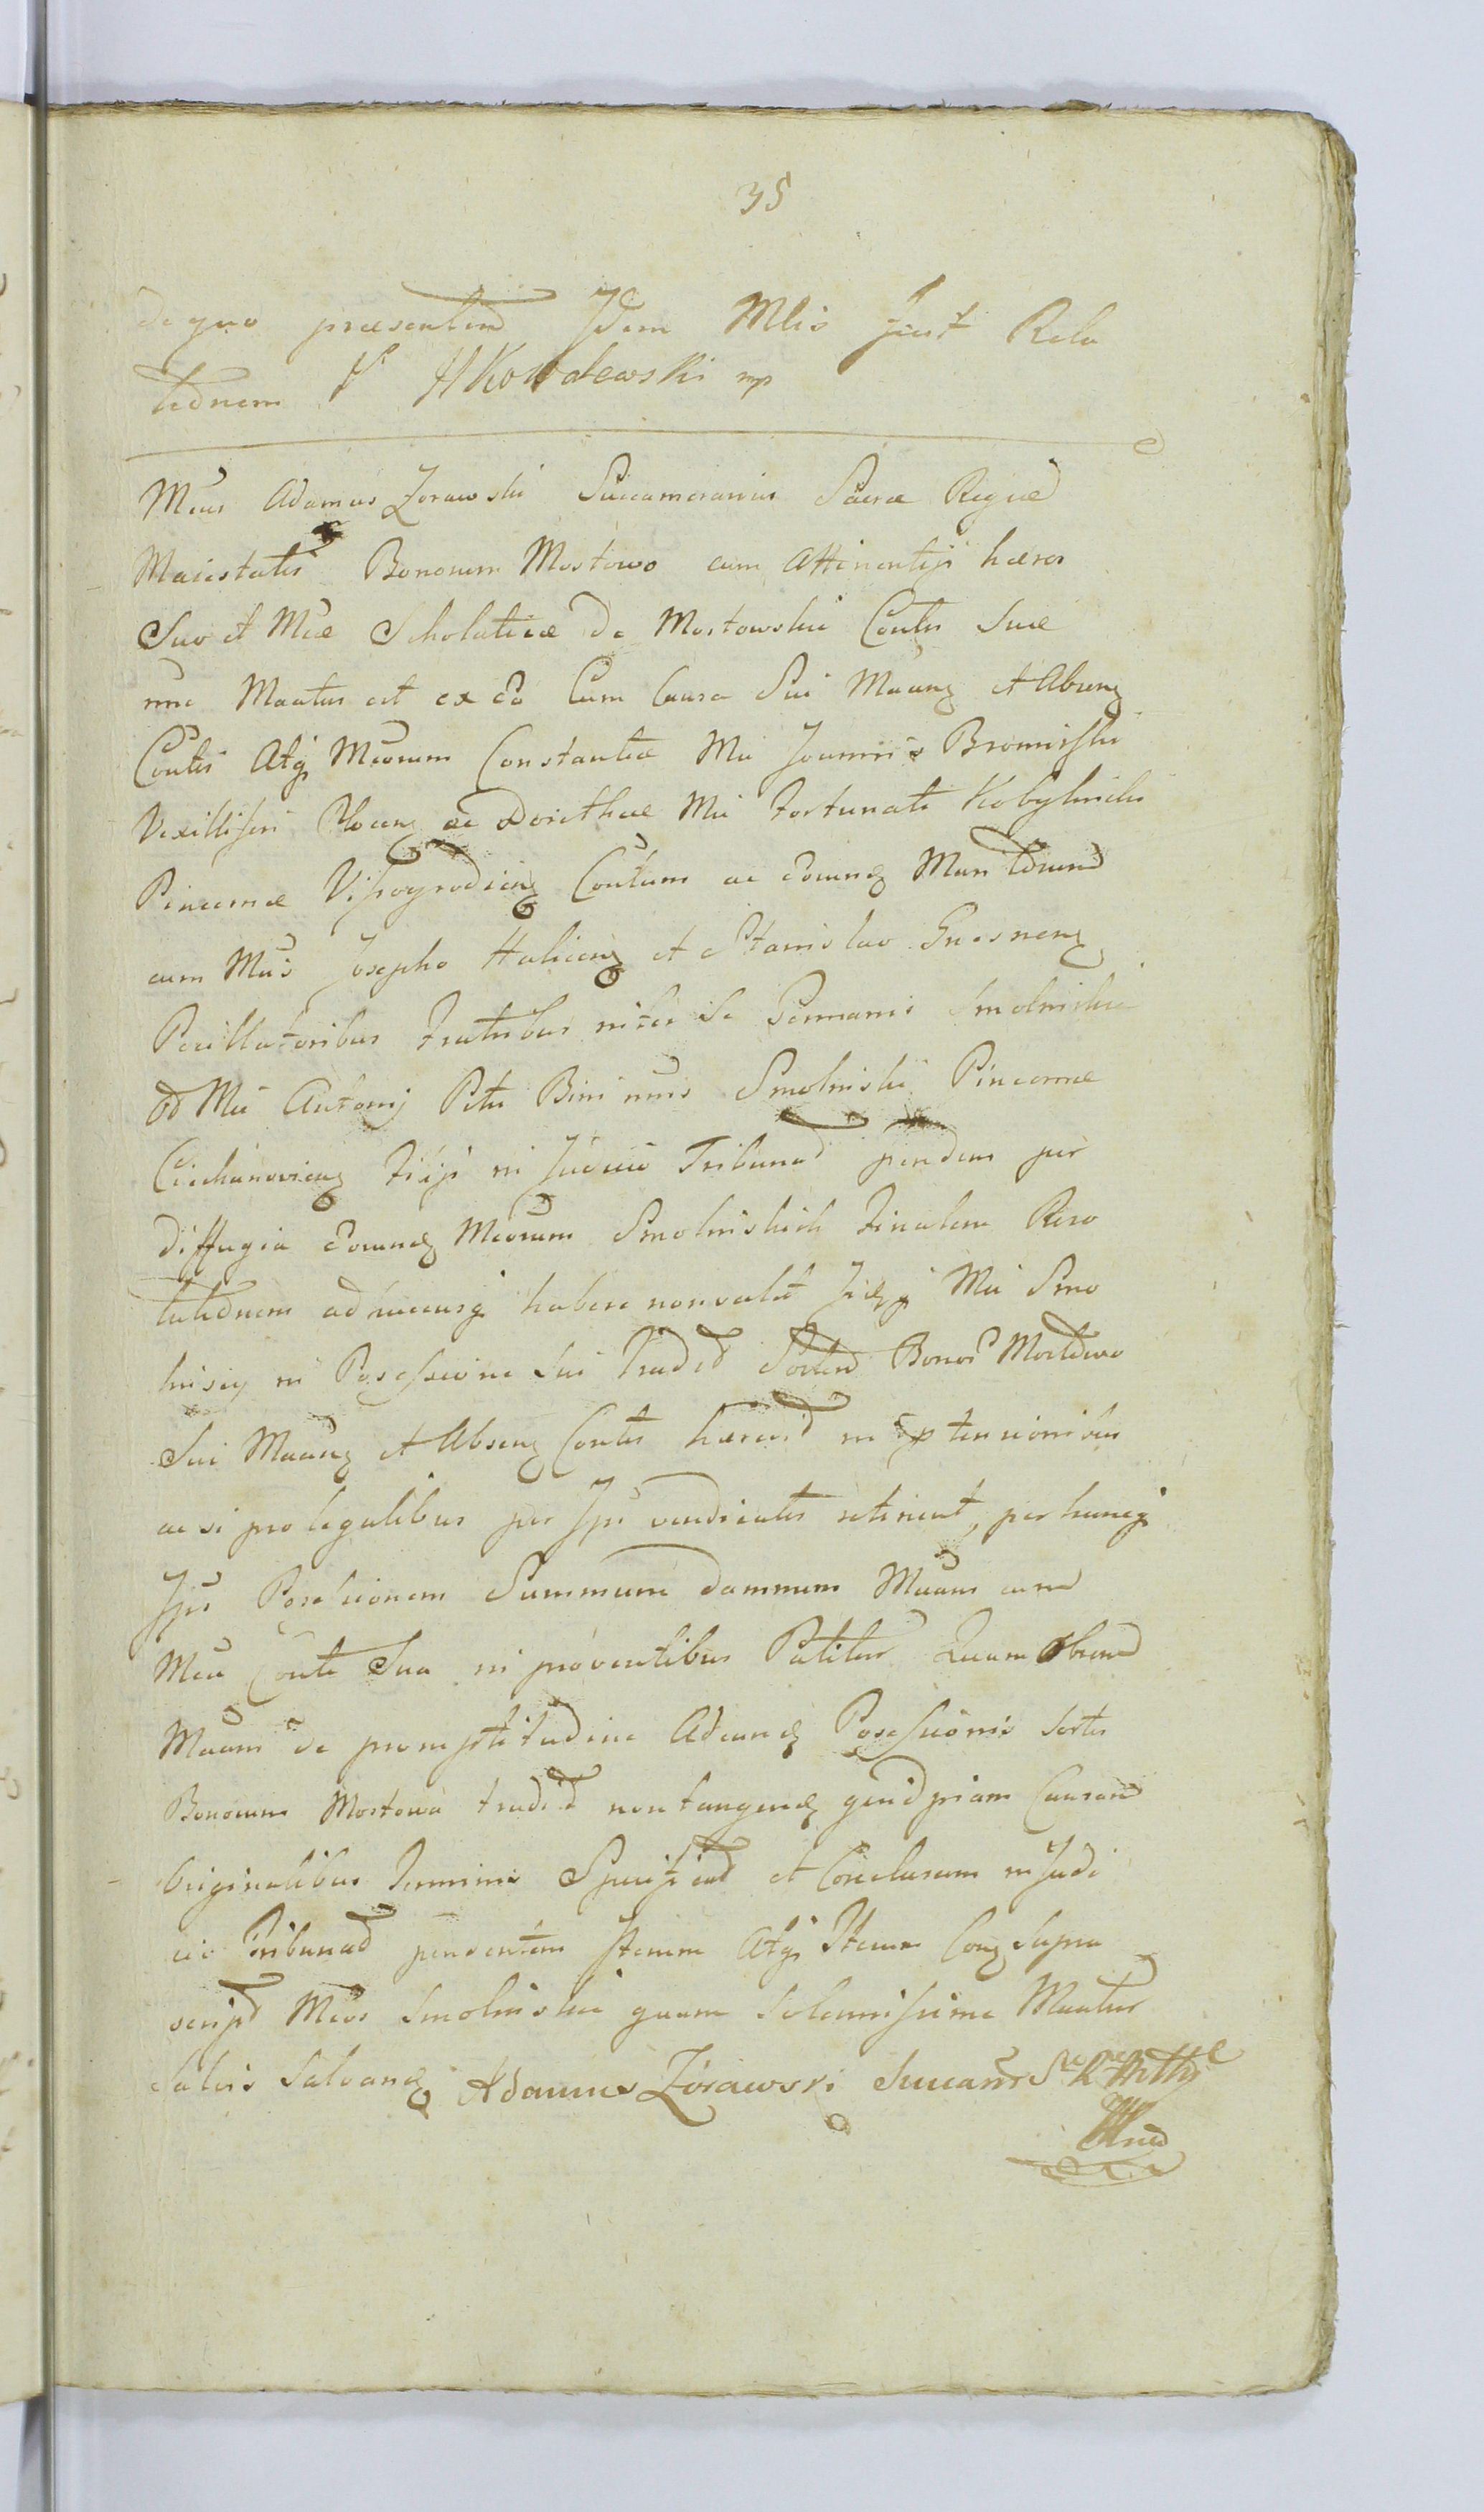 35
de quo praesentem Idem Mlis fecit Rela
tionem H Kowalewski mp
Mcus Adamus Zorawski Succamerarius Sacrae Regiae
Maiestatis Bonorum Mostowo cum Attinentijs haeres
Suo et Mcae Scholasticae de Mostowskie Contis Suae
nne Maatus est ex eo Cum Causa Sui Maanz et Absenz
Contis Atq Mcorum Constantiae Mci Joannis Bromirski
Vexilliferi Plocenz ac Dorothae Mci Fortunati Kobylinski
Pincernae Vissogrodienz Contum ac eorundz Maritorum
cum Mcis Josepho Halicenz et Stanislao Gnesnenz
Pocillatoribus Fratribus inter Se Germanis Smolinskie
Mci Antonij Smolinski Pincernae
Ciechanovienz Filijs in Judicio Tribunal pendens per
diffugia eorundz Mcorum Smolinskich Finalem Reso
lutionem adhucusq habere non valet Mci Smo
linscy in Possessione Sui Tradit Sortem Bonor Mostowo
Sui Maanz et Absenz Contis haered in
ac si pro legalibus per Ipsos vendicatis retinent, per hancq
Ipsor Possessionem Summum damnum Maans cum
Mca Conte Sua in proventibus Patitur Quam Obrem
Maans de promptitudine Adeundz Possessionis Sortis
Bonorum Mostowa tradit non tangendz Causam
Originalibus Terminis Specificat et Conclusam in Judi
cio Tribunal pendentem Iterum Atq Iterum Conz Supra
script Mcos Smolinskie quam Solennissime Maatur
Salvis Salvandz Adamus Zorawski Succamr S R Mttis